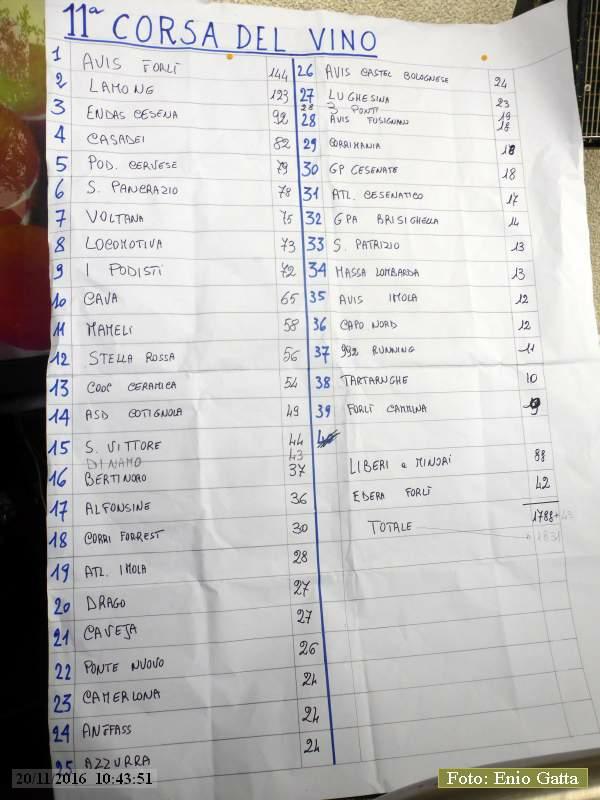 11ª CORSA DEL VINO
1 AVIS FORLÌ 144
2 LAMONE 123
3 ENDAS CESENA 92
4 CASADEI 82
5 POD. CERVESE 79
6 S. PANCRAZIO 78
7 VOLTANA 75
8 LOCOMOTIVA 73
9 I PODISTI 72
10 CAVA 65
11 MAMELI 58
12 STELLA ROSSA 56
13 COOC CERAMICA 54
14 ASD COTIGNOLA 49
15 S. VITTORE 44
DINAMO 43
16 BERTINORO 37
17 ALFONSINE 36
18 CORRI FORREST 30
19 ATL. IMOLA 28
20 DRAGO 27
21 CAVEJA 27
22 PONTE NUOVO 26
23 CAMERLONA 24
24 ANFFASS 24
25 AZZURRA 24
26 AVIS CASTEL BOLOGNESE 24
27 LUGHESINA 23
28 3 PONTI 19
28 AVIS FUSIGNANO 18
29 CORRIMANIA 18
30 GP CESENATE 18
31 ATL. CESENATICO 17
32 GPA BRISIGHELLA 14
33 S. PATRIZIO 13
34 MASSA LOMBARDA 13
35 AVIS IMOLA 12
36 CAPO NORD 12
37 992 RUNNING 11
38 TARTARUGHE 10
39 FORLÌ CAMMINA 9
40
LIBERI e MINORI 88
EDERA FORLÌ 42
TOTALE 1788+43
1831
20/11/2016 10:43:51
Foto: Enio Gatta